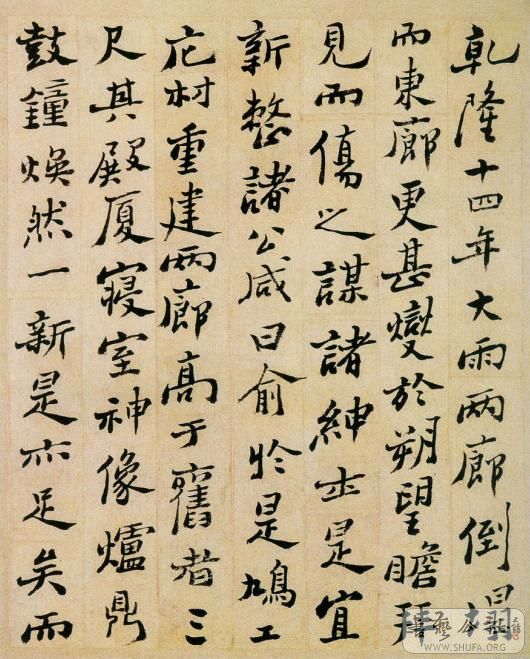 乾隆十四年大雨两廊倒塌
而東廊更甚燮於朔望瞻拜
見而傷之謀諸紳士是宜
新整諸公咸曰俞於是鳩工
庀材重建两廊高于舊者三
尺其殿厦寢室神像爐鼎
鼓鐘煥然一新是亦足矣而
WWW.SHUFA.ORG